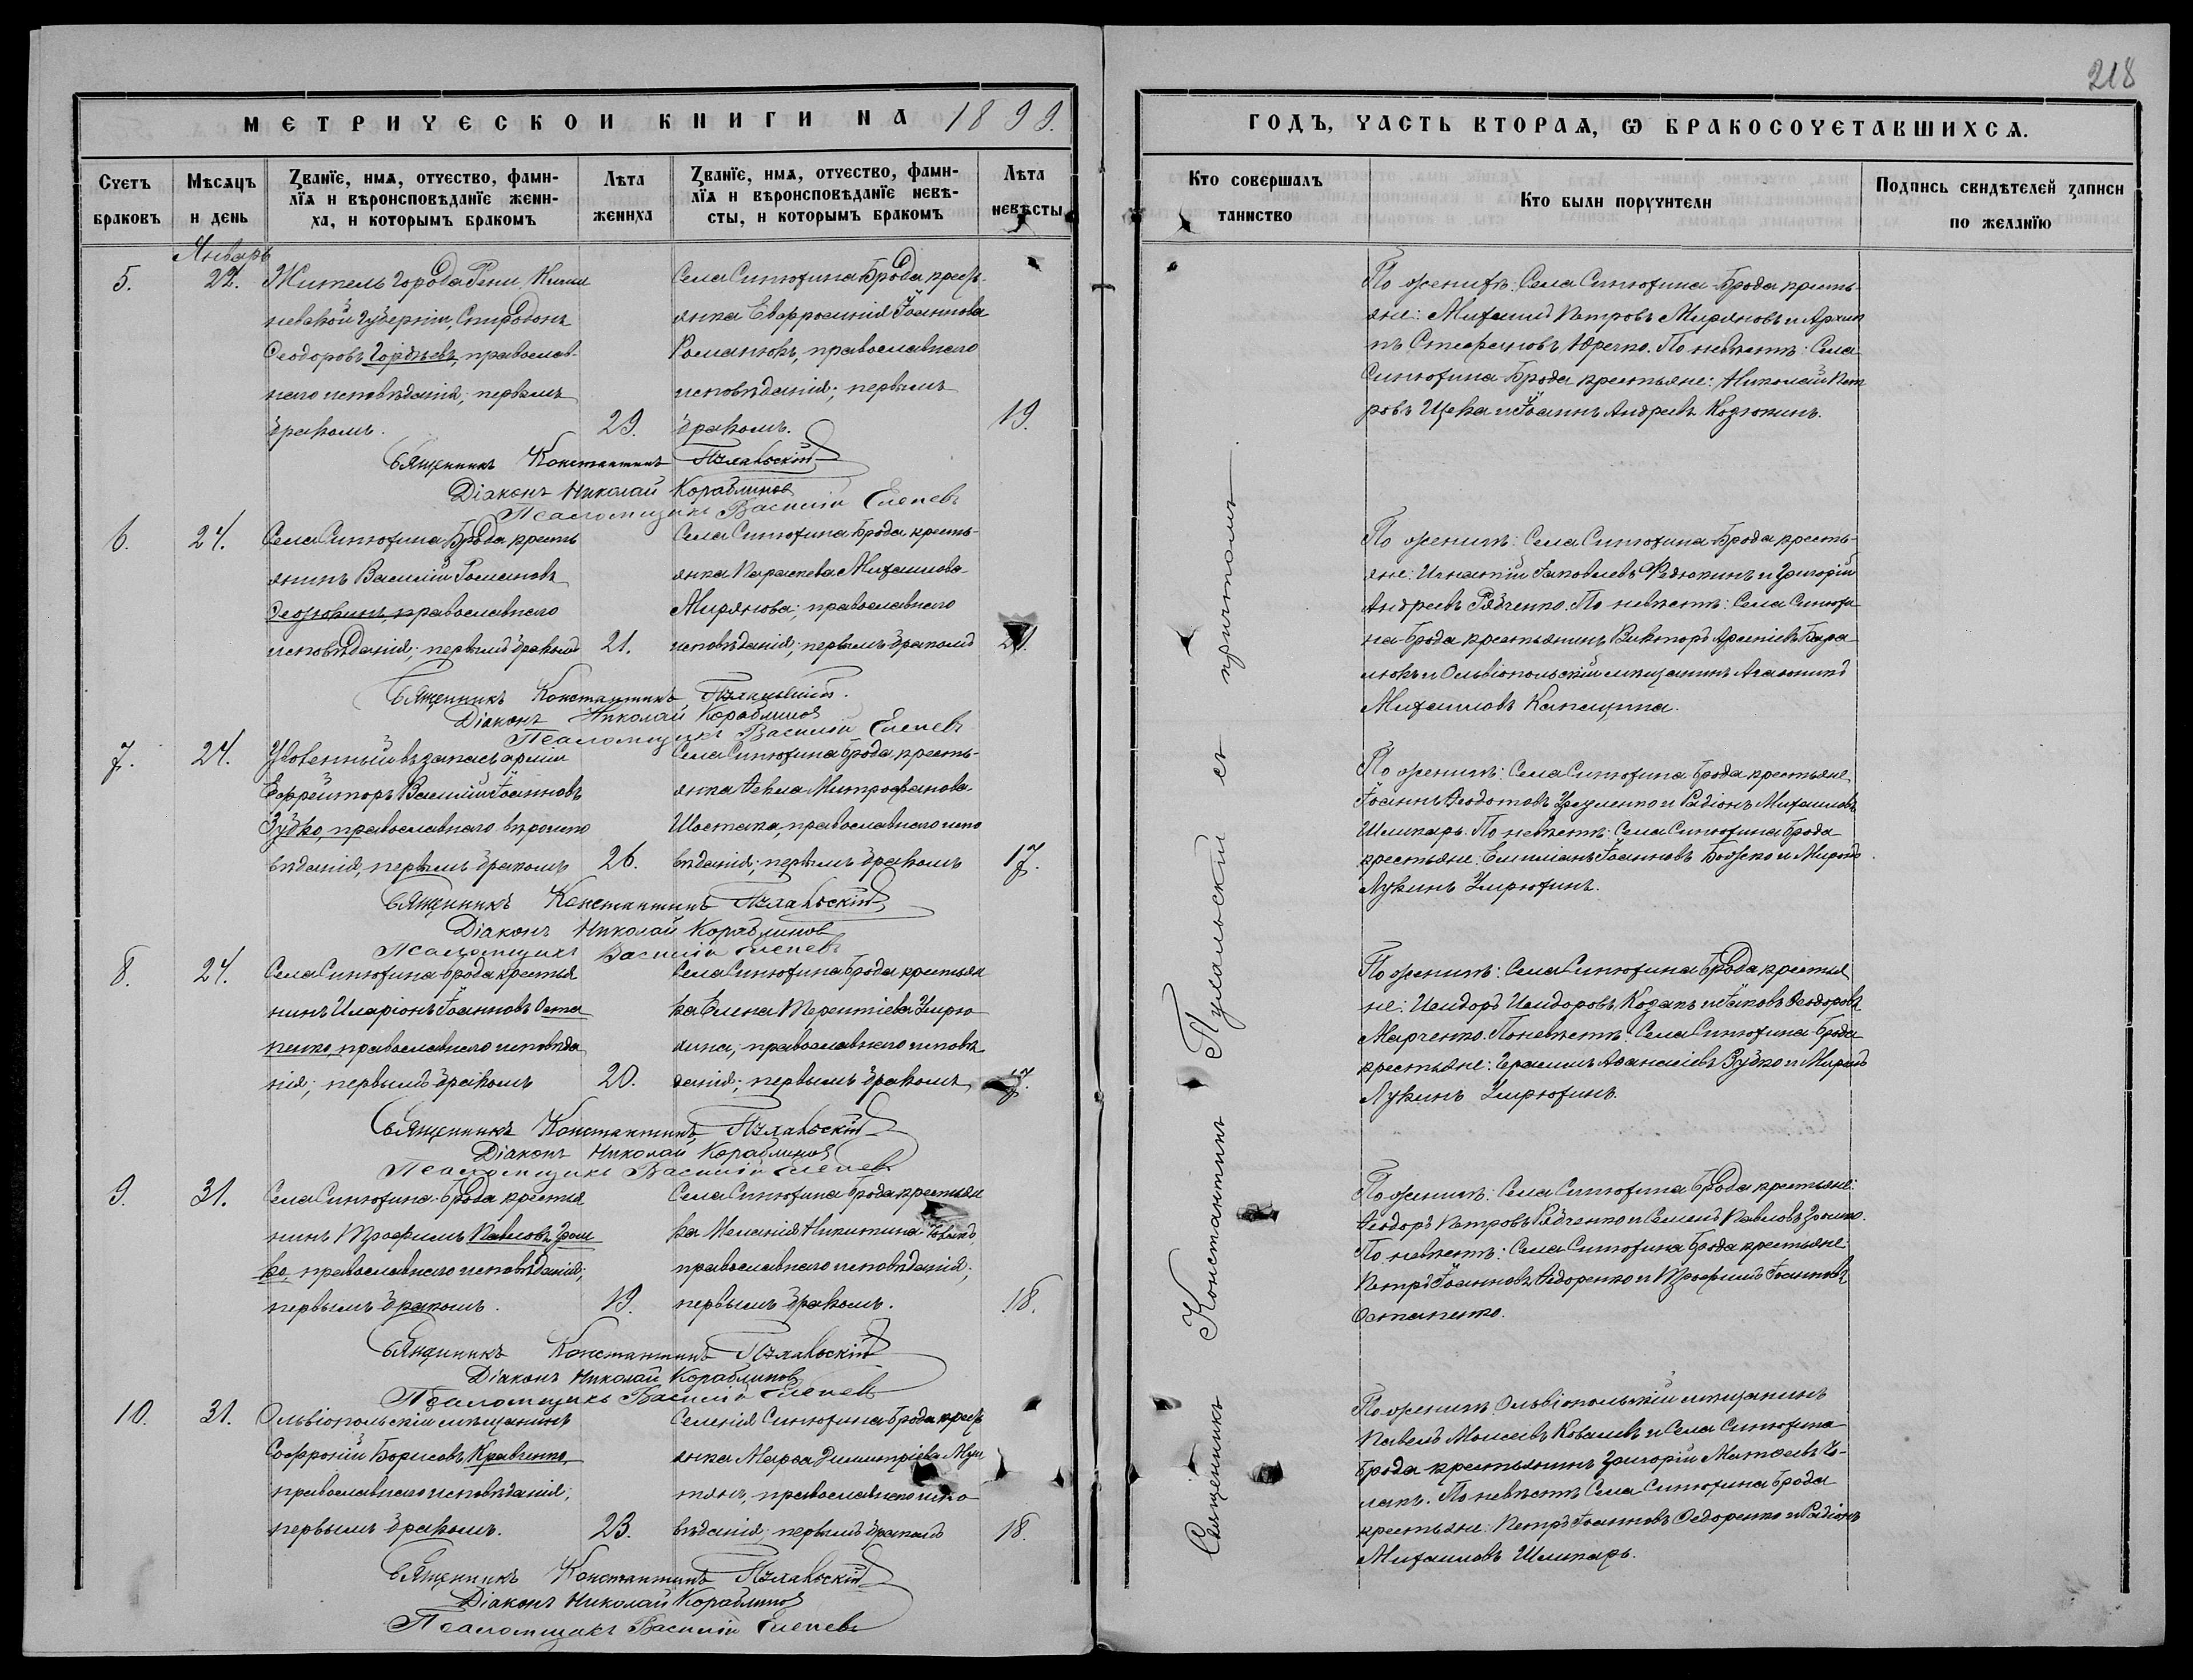 218
МЕТРИЧЕСКОЙ КНИГИ НА 1899.
ГОДЪ, ЧАСТЬ ВТОРАѦ, Ѡ БРАКОСОЧЕТАВШИХСѦ.
Счетъ браковъ
Мѣсѧцъ и день
Званїе, имѧ, отчество, фамилїѧ и вѣроисповѣданїе жениха, и которымъ бракомъ
Лѣта жениха
Званїе, имѧ, отчество, фамилїѧ и вѣроисповѣданїе невѣсты, и которымъ бракомъ
Лѣта невѣсты
Кто совершалъ таинство
Кто были поручители
Подпись свидѣтелей записи по желанїю
Январь
5.
22.
Житель города Рени, Киши
невской губерніи, Спиридонъ
Ѳеодоровъ Гордѣевъ, православ-
наго исповѣданія, первымъ
бракомъ.
29.
Села Синюхина Брода крест-
янка Евфросинія Іоаннова
Романюкъ, православнаго
исповѣданія; первымъ
бракомъ.
19.
По женихѣ: Села Синюхина-Брода кресть-
яне: Михаилъ Петровъ Миряновъ и Архип
пъ Стефановъ Юрченко. По невѣстѣ: Села
Синюхина-Брода крестьяне: Николай Пет
ровъ Щека и Іоаннъ Андреевъ
Священникъ Константинъ Пулавскій
Діаконъ Николай Кораблиновъ
Псаломщикъ Василій
6.
24.
Села Синюхина Брода кресть
янинъ Василій Романовъ
православнаго
исповѣданія; первымъ бракомъ
21.
Села Синюхина Брода кресть-
янка Параскева Михаилова
Мирянова; православнаго
исповѣданія; первымъ бракомъ
По женихѣ: Села Синюхина-Брода кресть-
яне: Игнатій Іаковлевъ Федюкинъ и Григорій
Андреевъ Рябченко. По невѣстѣ: Села Синюхи
на-Брода крестьянинъ Викторъ Арсеніевъ Бара
нюкъ и Ольвіопольскій мѣщанинъ
Михаиловъ Капацина.
Священникъ Константинъ Пулавскій.
Діаконъ Николай Кораблиновъ
Псаломщикъ Василій
7.
24.
Уволенный въ запасъ арміи
Ефрейторъ Василій Іоанновъ
Зубко, православнаго вѣроиспо
вѣданія, первымъ бракомъ
26.
Села Синюхина Брода кресть-
янка Ѳекла Митрофанова
Шостака, православнаго испо
вѣданія; первымъ бракомъ
17.
По женихѣ: Села Синюхина Брода крестьяне
Іоаннъ Ѳеодотовъ и Радіонъ Михаиловъ
Шмикарь. По невѣстѣ: Села Синюхина Брода
крестьяне: Емиліанъ Іоанновъ Божко и Миронъ
Лукинъ Умрюхинъ.
Священникъ Константинъ Пулавскій
Діаконъ Николай Кораблиновъ
Псаломщикъ Василій
8.
24.
Села Синюхина-Брода крестья
нинъ Иларіонъ Іоанновъ Оста
пенко, православнаго исповѣда
нія; первымъ бракомъ
20.
Села Синюхина Брода крестьян
ка Елена Терентіева Умрю
хина, православнаго исповѣ
данія; первымъ бракомъ
17.
По женихѣ: Села Синюхина Брода крестья
не: Исидоръ Исидоровъ Козакъ и Іаковъ Ѳеодоровъ
Марченко. По невѣстѣ: Села Синюхина-Брода
крестьяне: Герасимъ Аѳанасіевъ Зубко и Миронъ
Лукинъ Умрюхинъ.
Священникъ Константинъ Пулавскій
Діаконъ Николай Кораблиновъ
Псаломщикъ Василій
9.
31.
Села Синюхина-Брода крестья
нинъ Трофимъ Павловъ Гром
ко, православнаго исповѣданія;
первымъ бракомъ.
19.
Села Синюхина Брода крестьян
ка Меланія Никитина
православнаго исповѣданія;
первымъ бракомъ.
18.
По женихѣ: Села Синюхина Брода крестьяне:
Ѳеодоръ Петровъ Рябченко и Семенъ Павловъ Громко.
По невѣстѣ: Села Синюхина Брода крестьяне
Петръ Іоанновъ Ѳедоренко и Трофимъ Іоанновъ
Остапенко.
Священникъ Константинъ Пулавскій
Діаконъ Николай Кораблиновъ
Псаломщикъ Василій
10.
31.
Ольвіопольскій мѣщанинъ
Софроній Борисовъ Кравченко,
православнаго исповѣданія;
первымъ бракомъ.
23.
Селенія Синюхина-Брода крест
янка Марѳа Димитріева Мун
тянъ, православнаго испо
вѣданія; первымъ бракомъ
18.
По женихѣ: Ольвіопольскій мѣщанинъ
Павелъ Моисеевъ Ковалевъ и Села Синюхина
Брода крестьянинъ Григорій Матѳеевъ Чо-
лакъ. По невѣстѣ Села Синюхина Брода
крестьяне: Петръ Іоанновъ Ѳедоренко и Радіонъ
Михаиловъ Шмикарь.
Священникъ Константинъ Пулавскій
Діаконъ Николай Кораблиновъ
Псаломщикъ Василій
Священникъ Константинъ Пулавскій съ причтомъ